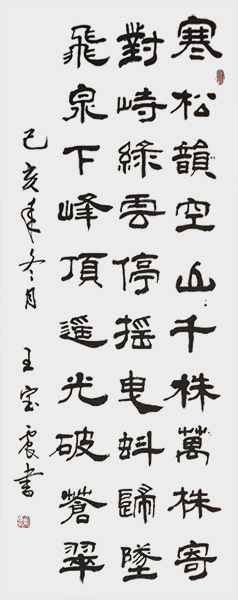 寒松韻空山千株萬株寄
對峙綠雲停搖曳蚪歸墜
飛泉下峰頂遥光破蒼翠
己亥年冬月 王宝震書